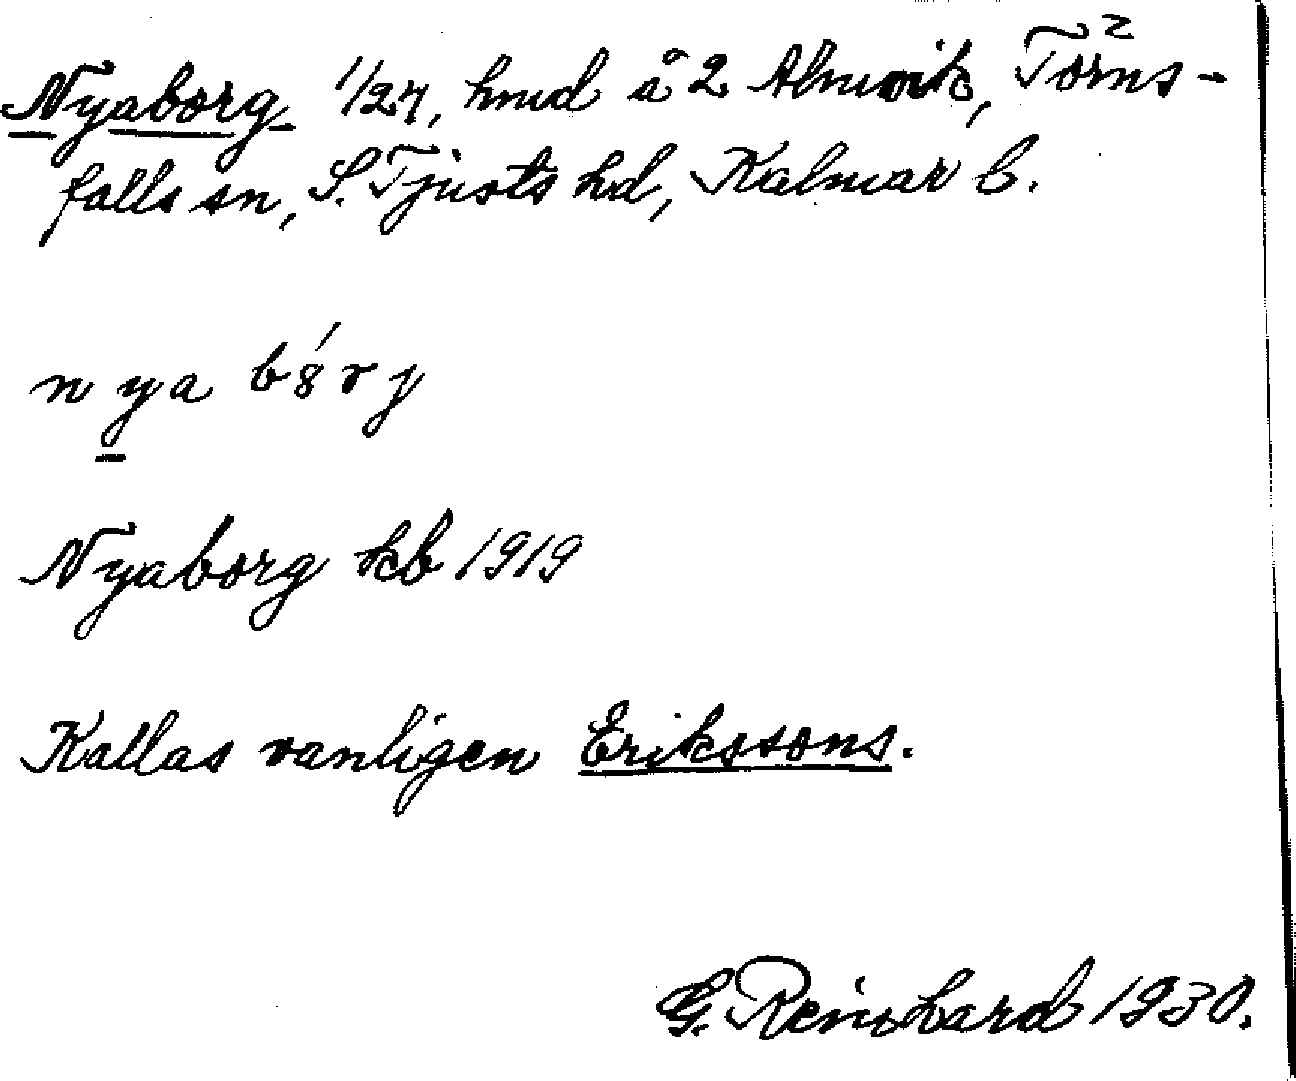 Nyaborg 1/27, hmd å 2 Almvik, Törns-
falls sn, S. Tjusts hd, Kalmar l.
nya bórj
Nyaborg kb 1919
Kallas vanligen Erikssons.
G. Reinhard 1930.